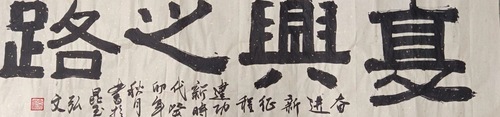 夏興之路
奋
進
新
征
程
建功
新時
代癸
卯年
秋月
書於
弘文